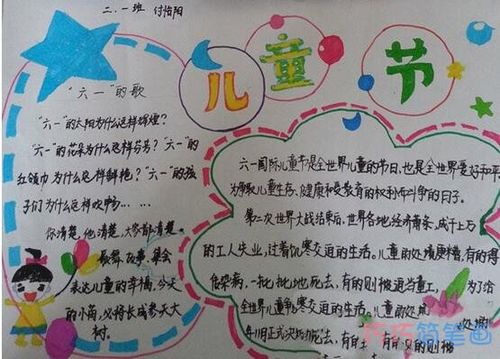 二.一班
儿童节
“六一”的歌
“六一”的太阳为什么这样辉煌?
“六一”的花朵为什么这样芬芳?“六一”的
红领巾为什么这样鲜艳?“六一”的孩
子们为什么这样欢畅……
你清楚,他清楚,大家都清楚。
歌舞、故事、集会
表达儿童的幸福,今天
的小苗,必将长成参天大
树。
六一国际儿童节是全世界儿童的节日,也是全世界爱好和平
为争取儿童生存、健康和受教育的权利而斗争的日子。
第二次世界大战结束后,世界各地经济萧条,成千上万
的工人失业,过着饥寒交迫的生活。儿童的处境更糟,有的得
传染病,一批批地死去,有的则被迫当童工,为了给
全世界儿童饥寒交迫的生活。儿童的处境
年11月正式决定
有的则被
简笔画